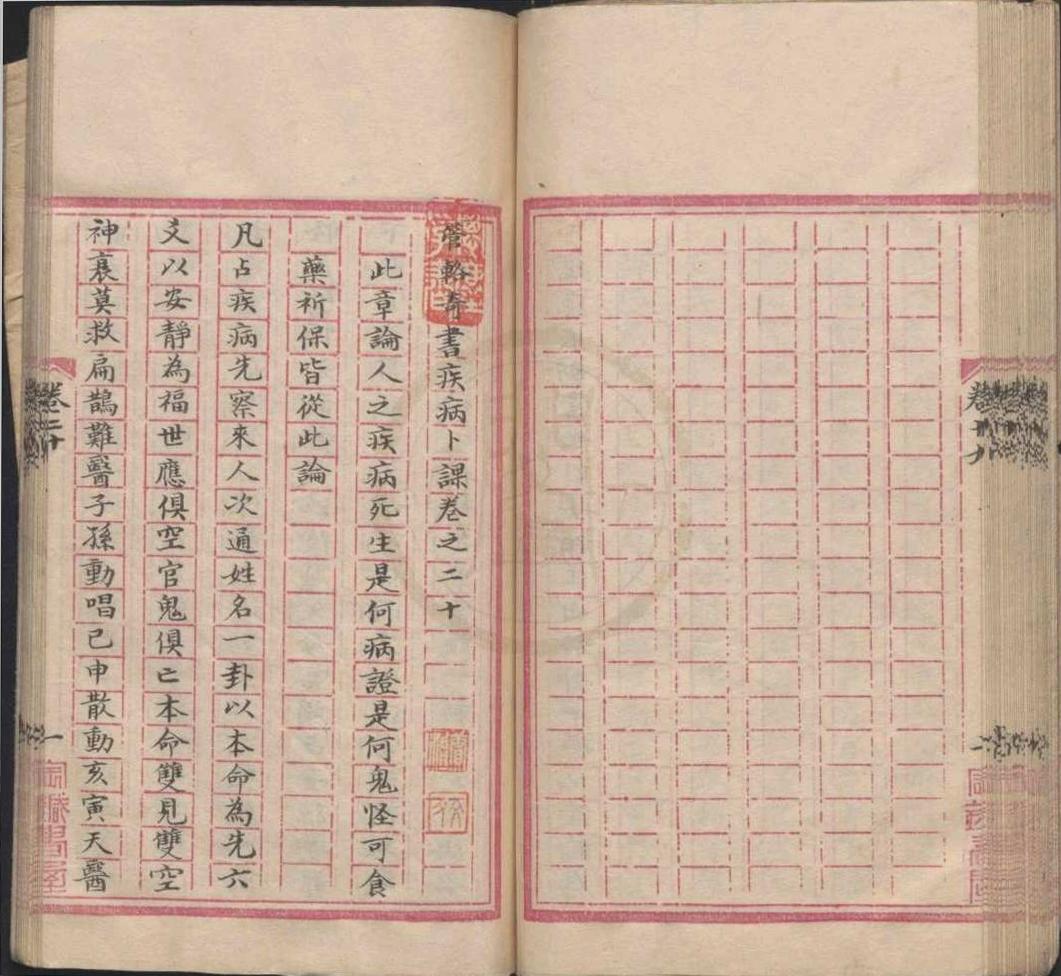 管輅奇書疾病卜課卷之二十
此章論人之疾病死生是何病證是何鬼怪可食
藥祈保皆從此論
凡占疾病先察來人次通姓名一卦以本命為先六
爻以安靜為福世應俱空官鬼俱亡本命雙見雙空
神衰莫救扁鵲難醫子孫動唱巳申散動亥寅天醫
卷二十
一